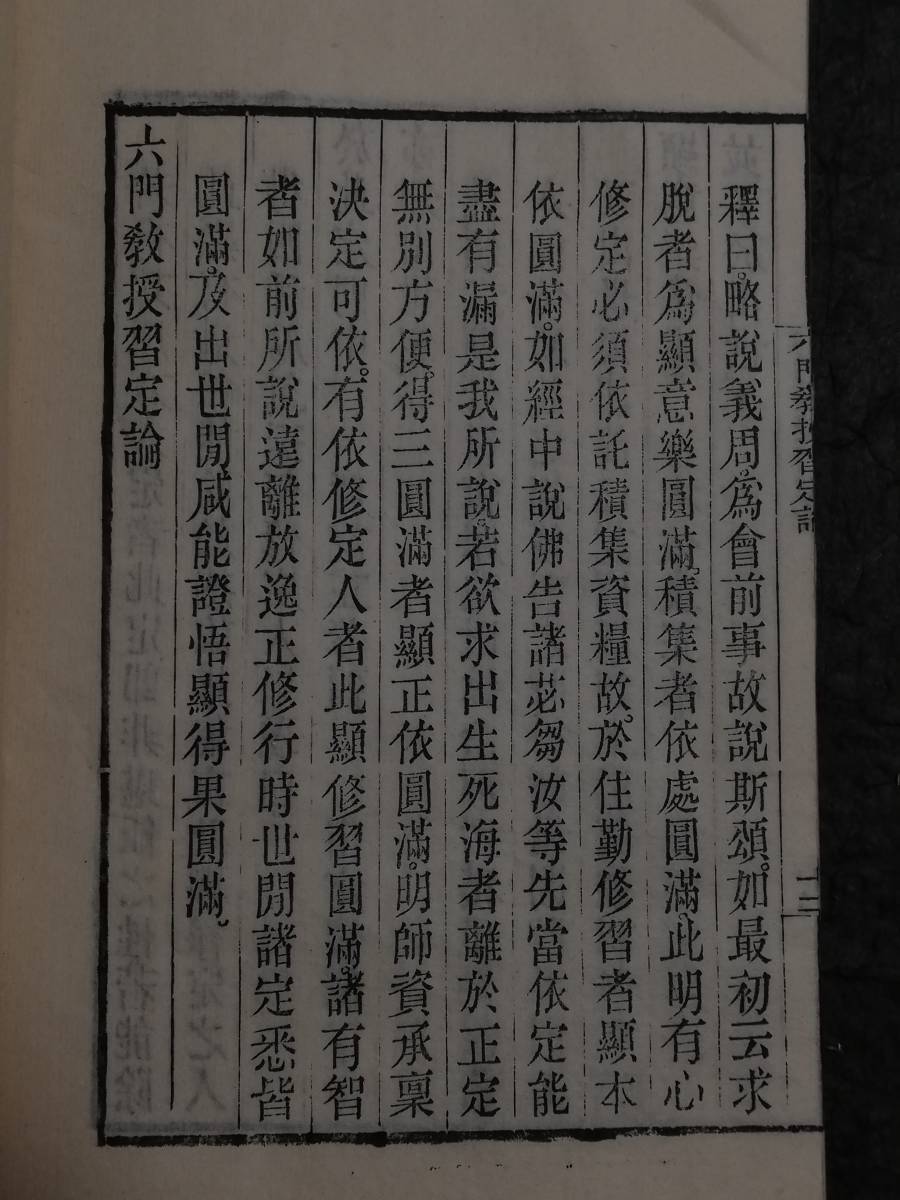 六門教授習定論
十三
釋曰。略說義周。為會前事故說斯頌。如最初云求
脫者為顯意樂圓滿。積集者依處圓滿。此明有心
修定必須依託積集資糧故。於住勤修習者顯本
依圓滿。如經中說佛告諸苾芻汝等先當依定能
盡有漏是我所說。若欲求出生死海者離於正定
無別方便。得三圓滿者顯正依圓滿。明師資承稟
決定可依。有依修定人者此顯修習圓滿。諸有智
者如前所說遠離放逸正修行時世閒諸定悉皆
圓滿。及出世閒咸能證悟顯得果圓滿。
六門教授習定論